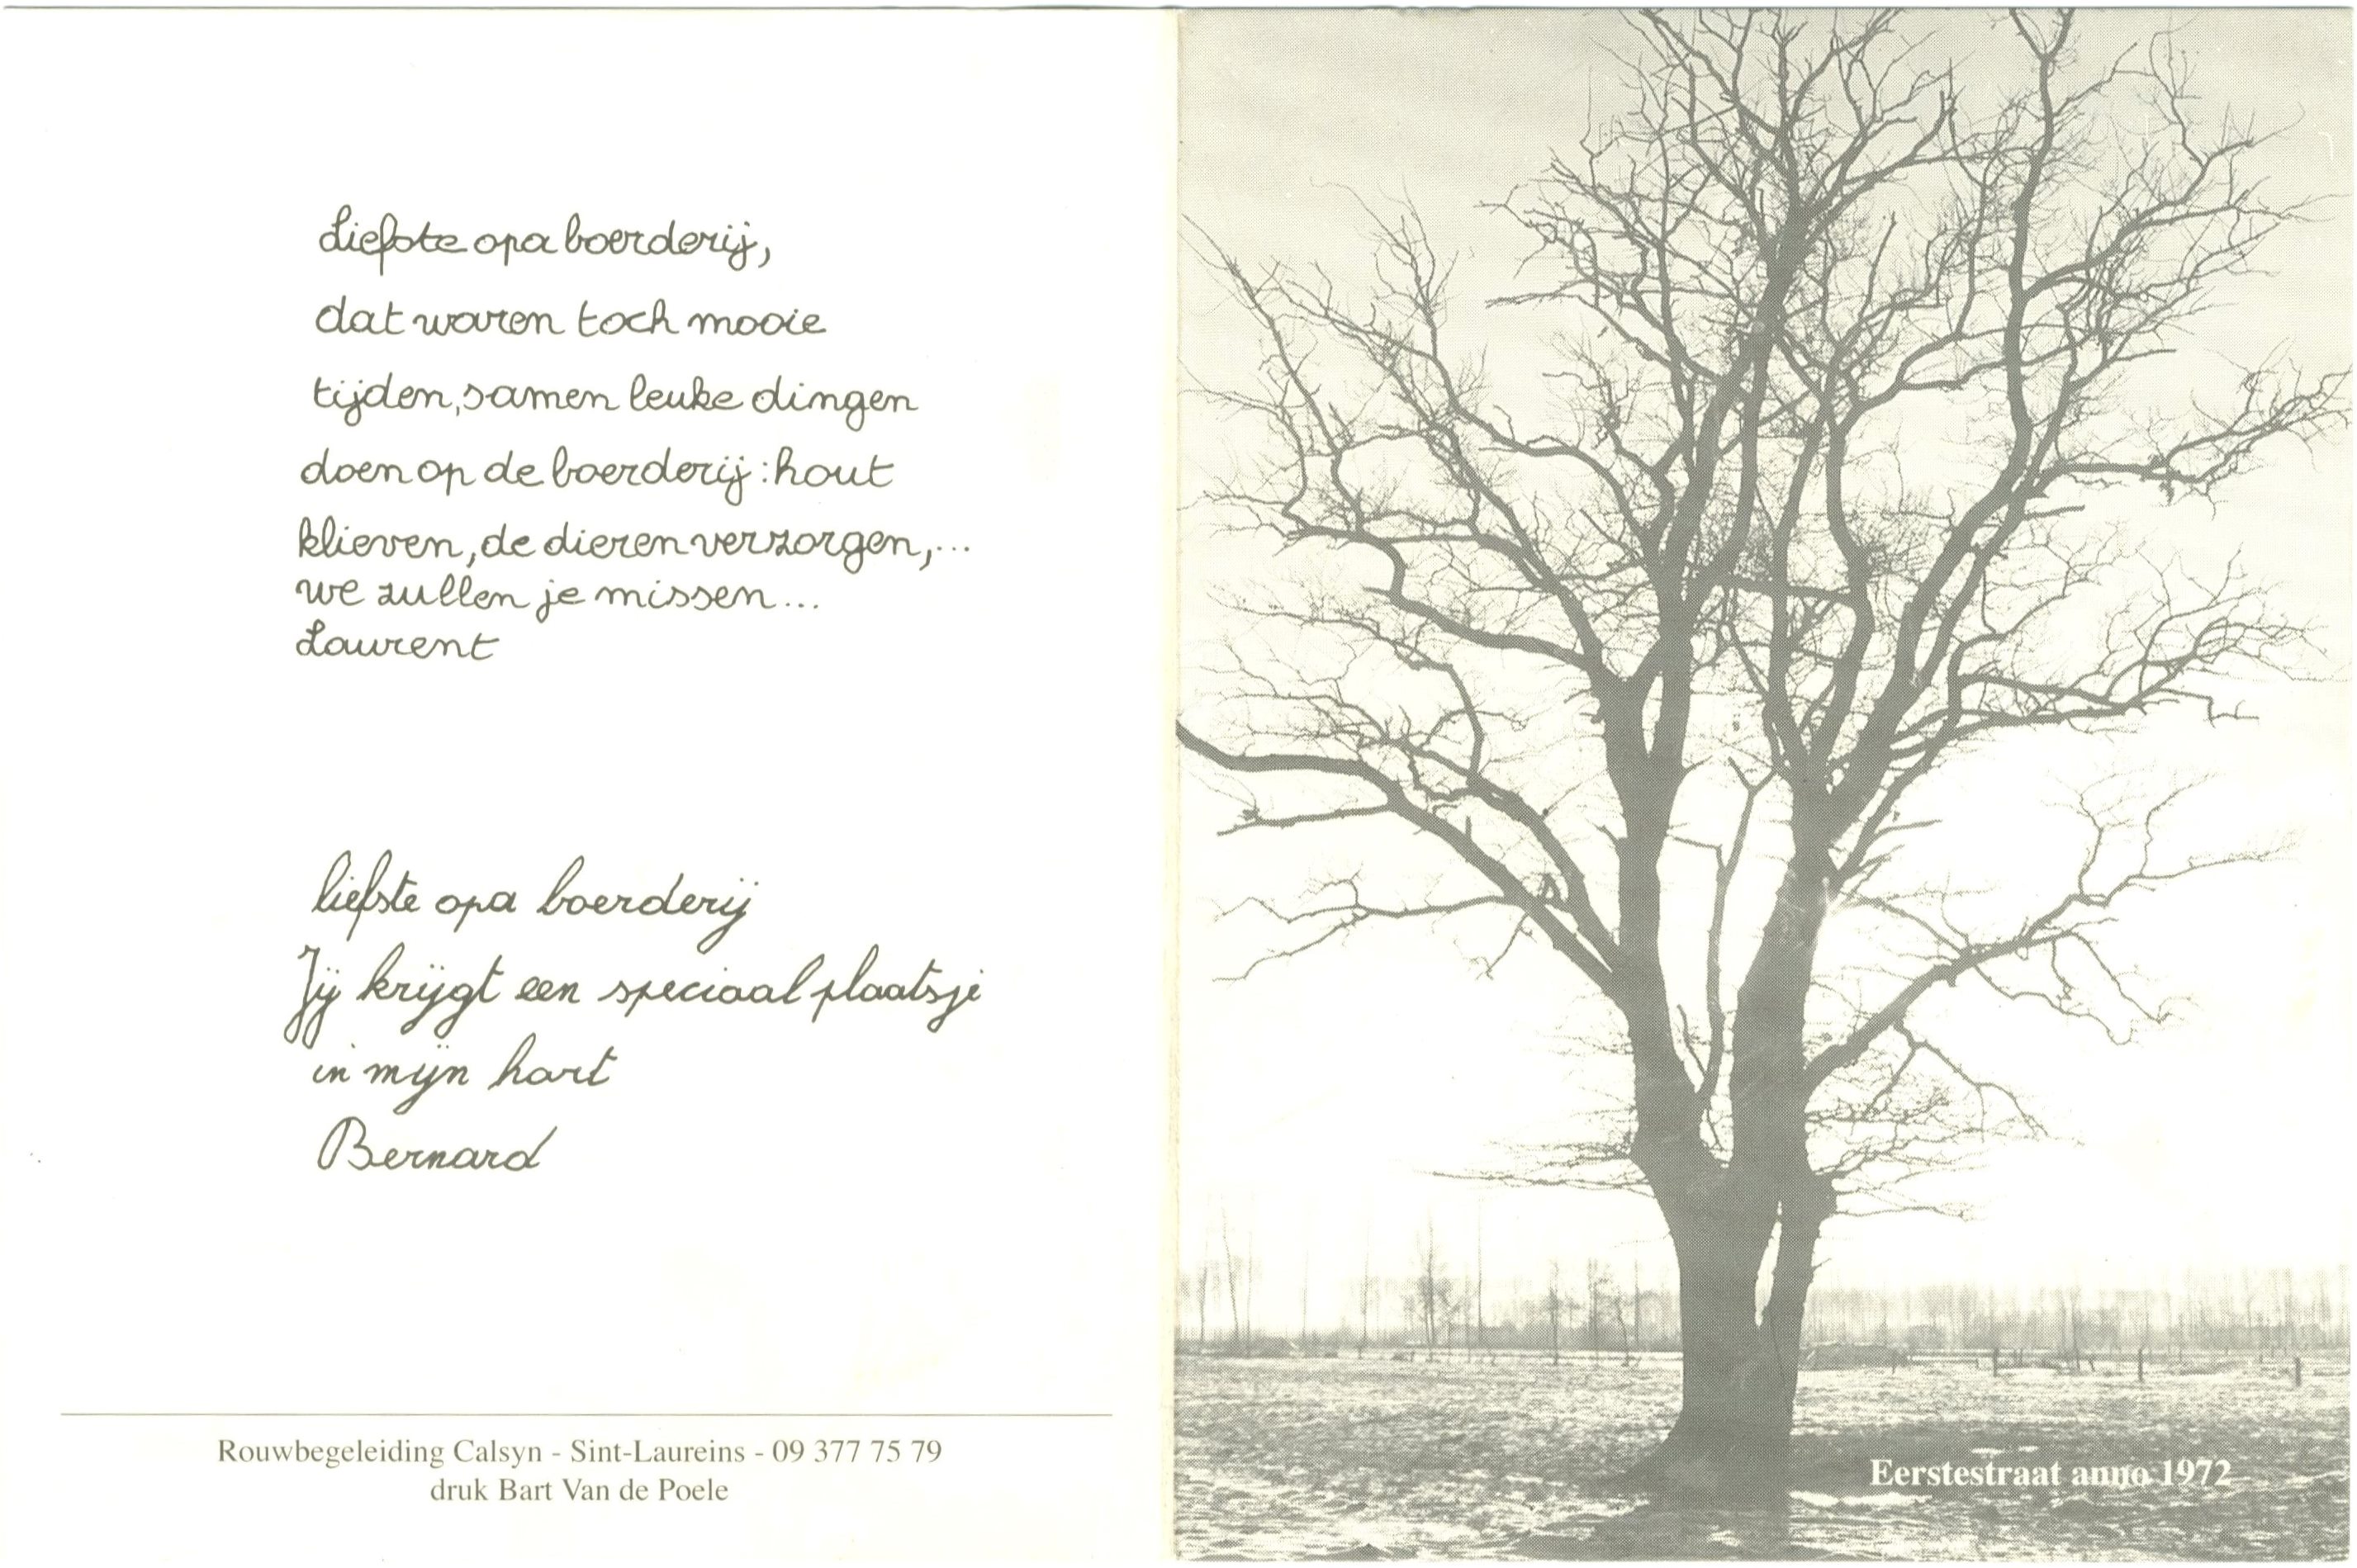 Liefste opa boerderij,
dat waren toch mooie
tijden, samen leuke dingen
doen op de boerderij: hout
klieven, de dieren verzorgen,...
we zullen je missen...
Laurent
liefste opa boerderij
Jij krijgt een speciaal plaatsje
in mijn hart
Bernard
Rouwbegeleiding Calsyn - Sint-Laureins - 09 377 75 79
druk Bart Van de Poele
Eerstestraat anno 1972